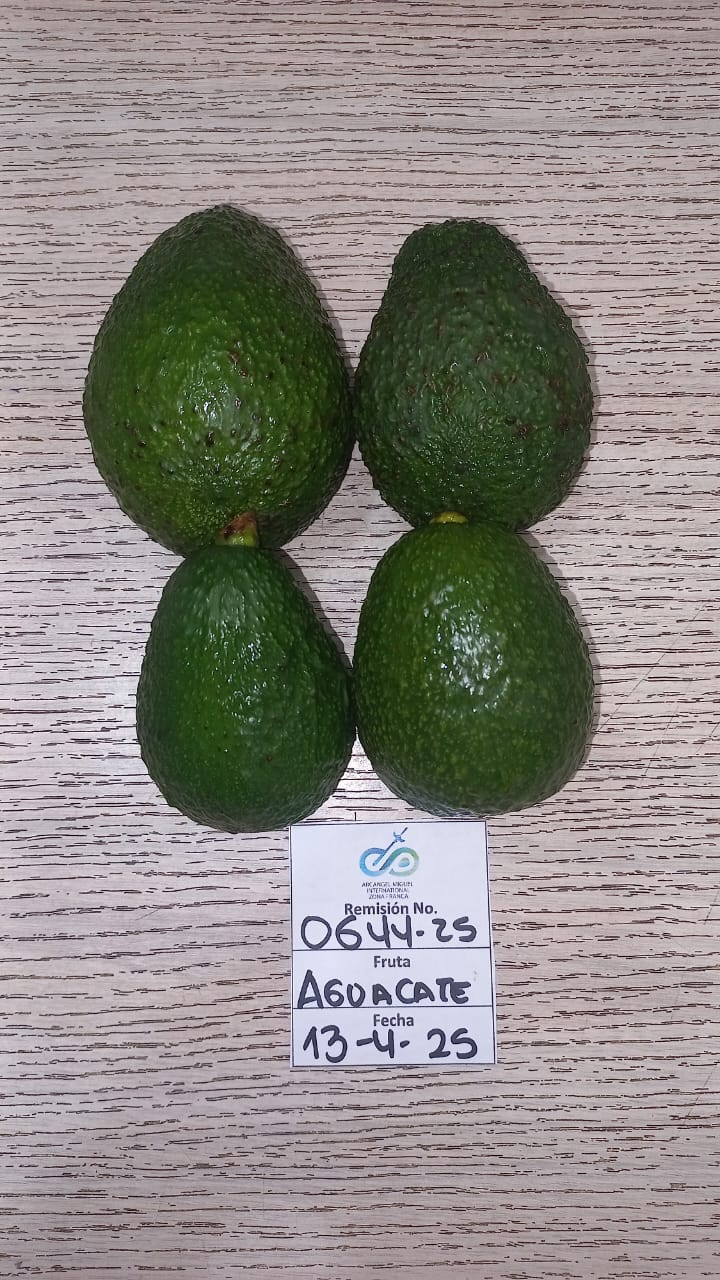 ARCANGEL MIGUEL
INTERNATIONAL
ZONA FRANCA
Remisión No.
0644-25
Fruta
AGUACATE
Fecha
13-4-25